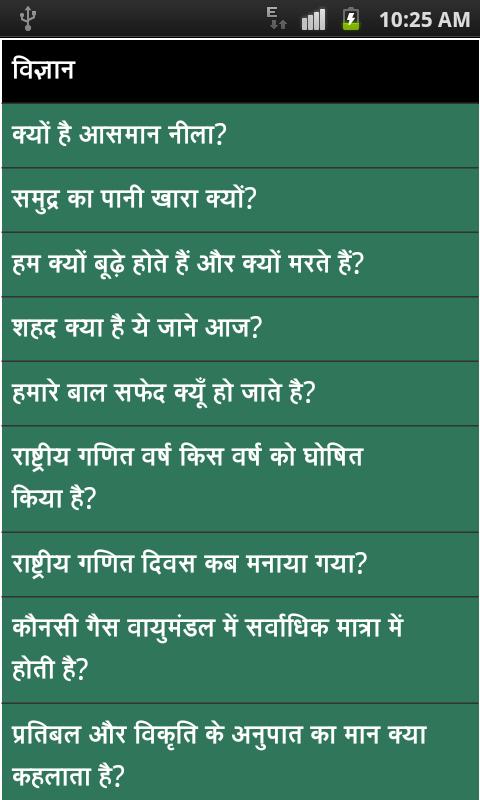 E 10:25 AM
विज्ञान
क्यों है आसमान नीला?
समुद्र का पानी खारा क्यों?
हम क्यों बूढ़े होते हैं और क्यों मरते हैं?
शहद क्या है ये जाने आज?
हमारे बाल सफेद क्यूँ हो जाते है?
राष्ट्रीय गणित वर्ष किस वर्ष को घोषित
किया है?
राष्ट्रीय गणित दिवस कब मनाया गया?
कौनसी गैस वायुमंडल में सर्वाधिक मात्रा में
होती है?
प्रतिबल और विकृति के अनुपात का मान क्या
कहलाता है?